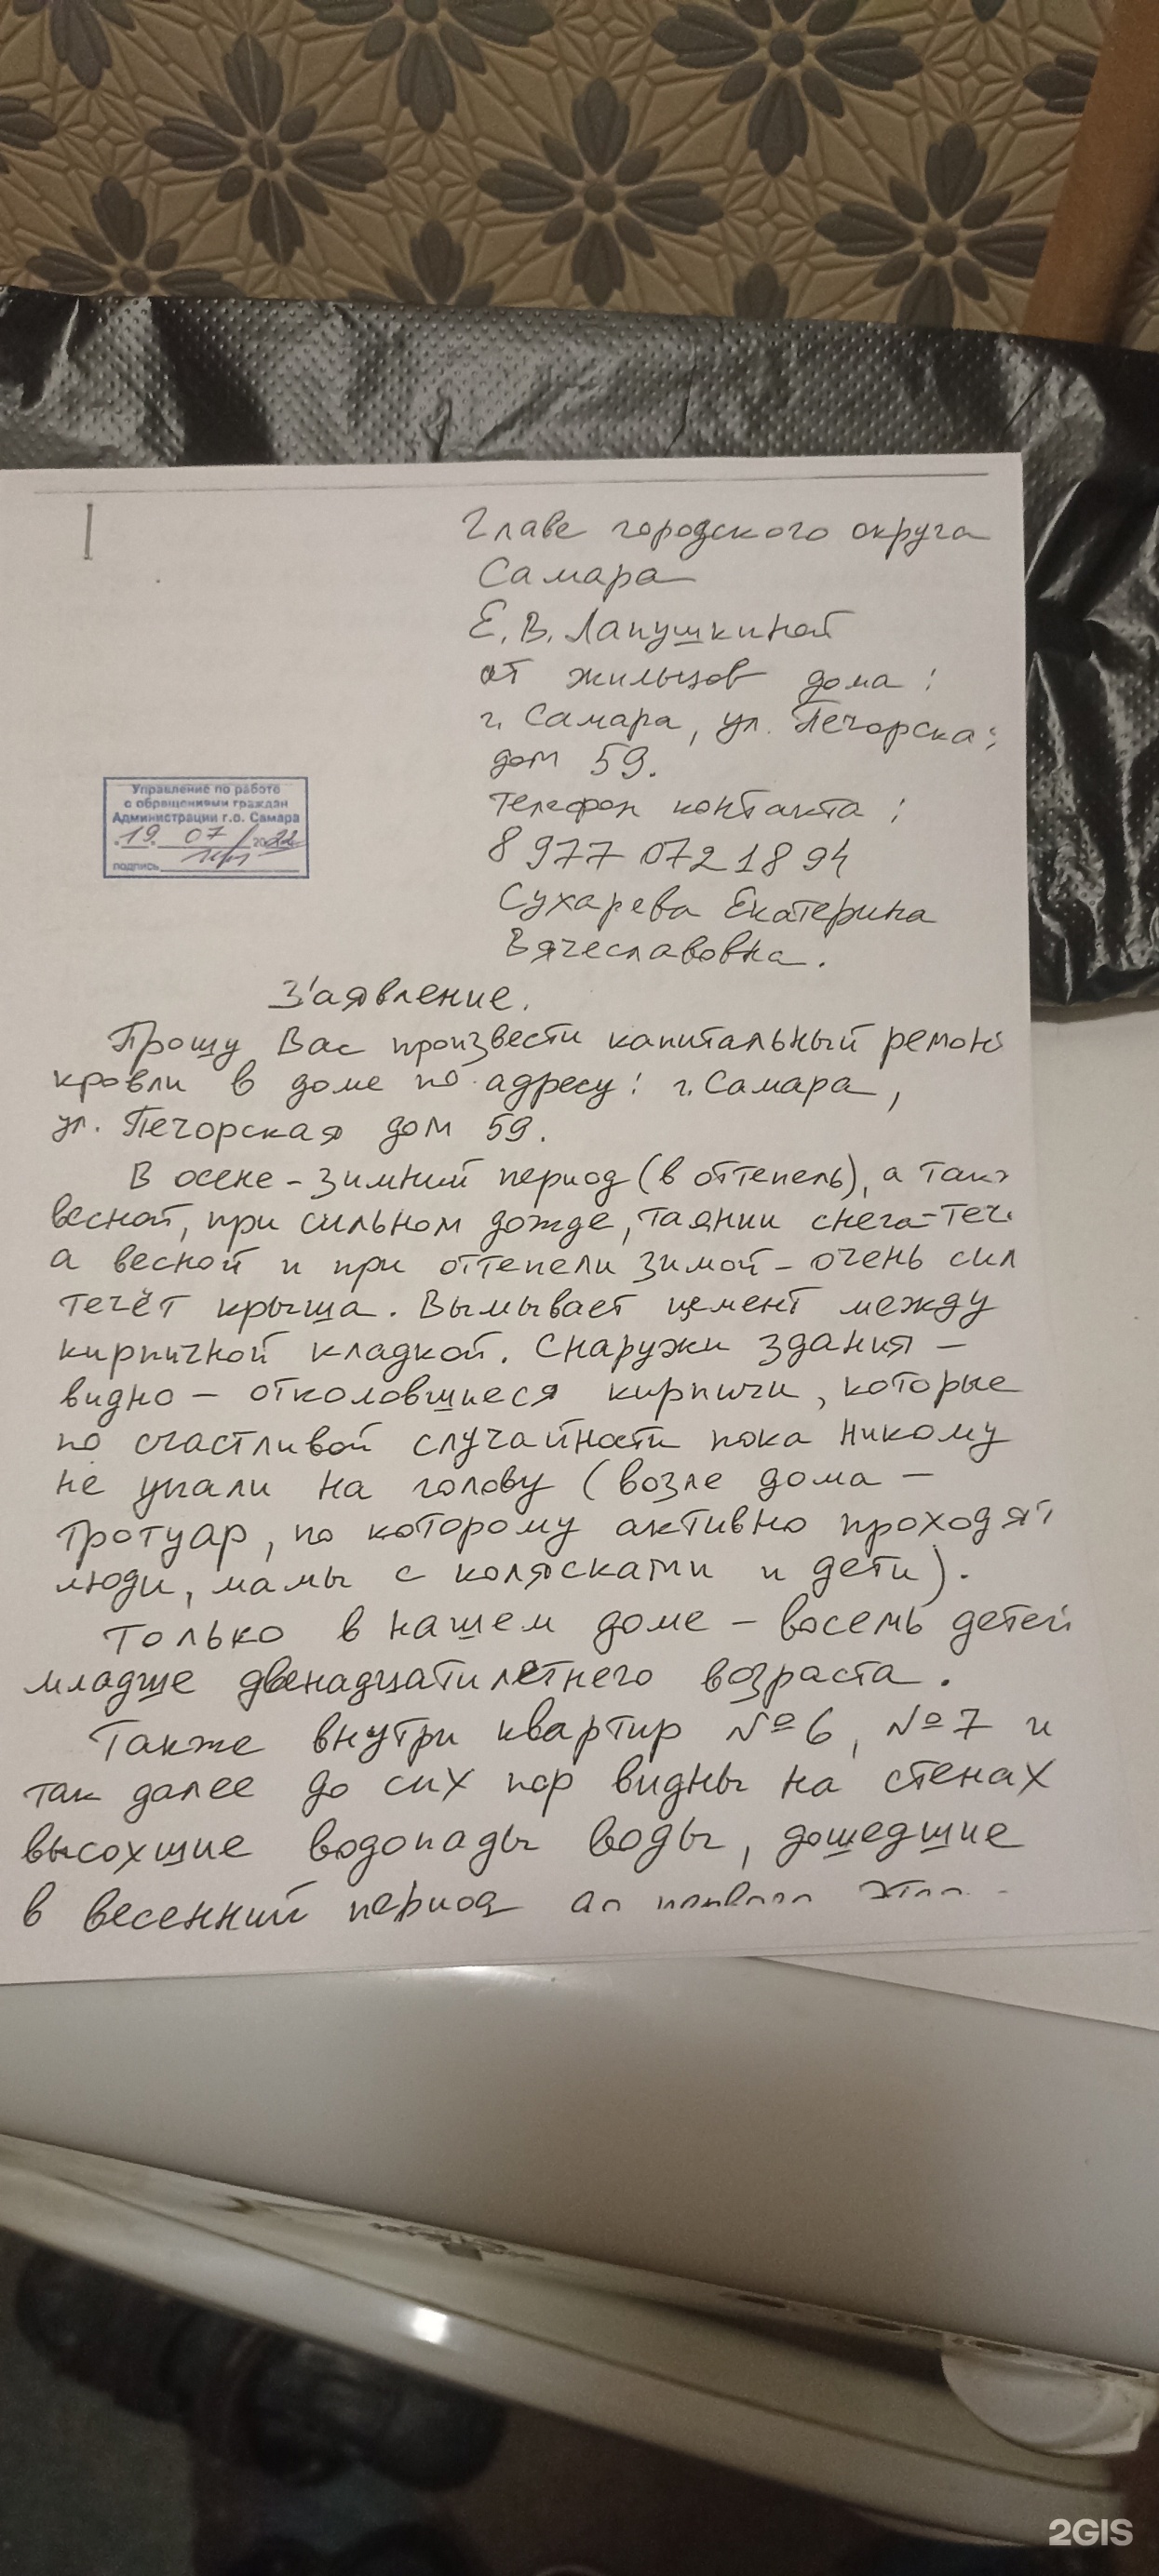 Главе городского округа
Самара
Е.В. Лапушкиной
от жильцов дома:
г. Самара, ул. Печорска
дом 59.
Телефон контакта:
8 977 072 18 94
Сухарева Екатерина
Вячеславовна.
Управление по работе
с обращениями граждан
Администрации г.о. Самара
19. 07 2022
подпись
Заявление.
Прошу Вас произвести капитальный ремон
кровли в доме по адресу: г. Самара,
ул. Печорская дом 59.
В осене-зимний период (в оттепель), а так
весной, при сильном дожде, таянии снега-теч
а весной и при оттепели зимой - очень сил
течёт крыша. Вымывает цемент между
кирпичной кладкой. Снаружи здания -
видно - отколовшиеся кирпичи, которые
по счастливой случайности пока никому
не упали на голову (возле дома -
тротуар, по которому активно проходят
люди, мамы с колясками и дети).
Только в нашем доме - восемь детей
младше двенадцатилетнего возраста.
Также внутри квартир №6, №7 и
так далее до сих пор видны на стенах
высохшие водопады воды, дошедшие
в весенний период до
2GIS